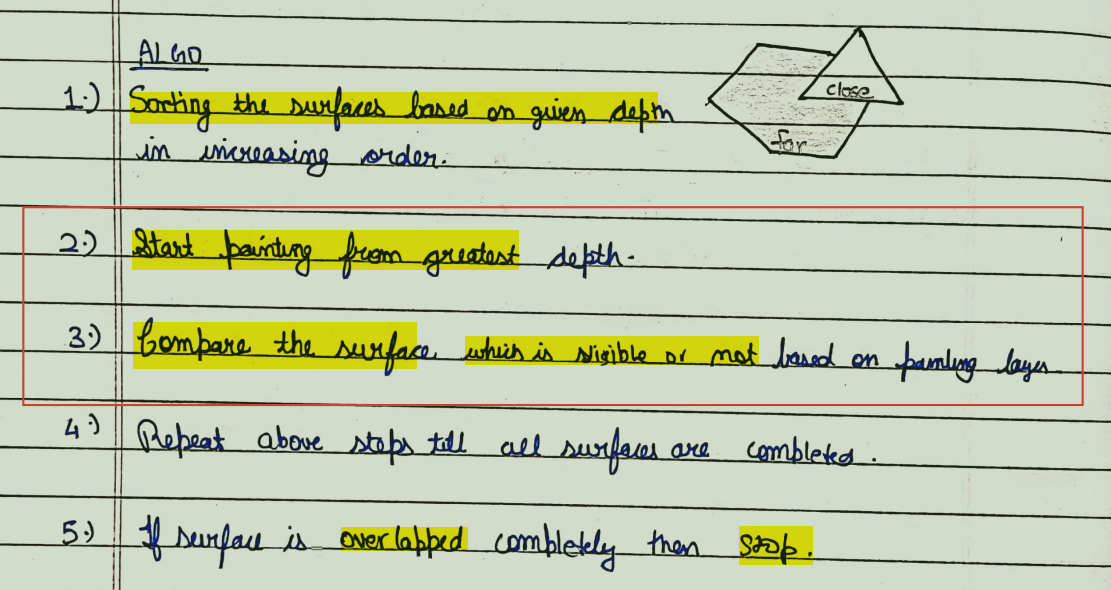 ALGO
1.) Sorting the surfaces based on given depth
close
far
in increasing order.
2.) Start painting from greatest depth.
3.) Compare the surface which is visible or not based on painting layer
4.) Repeat above steps till all surfaces are completed.
5.) If surface is overlapped completely then stop.